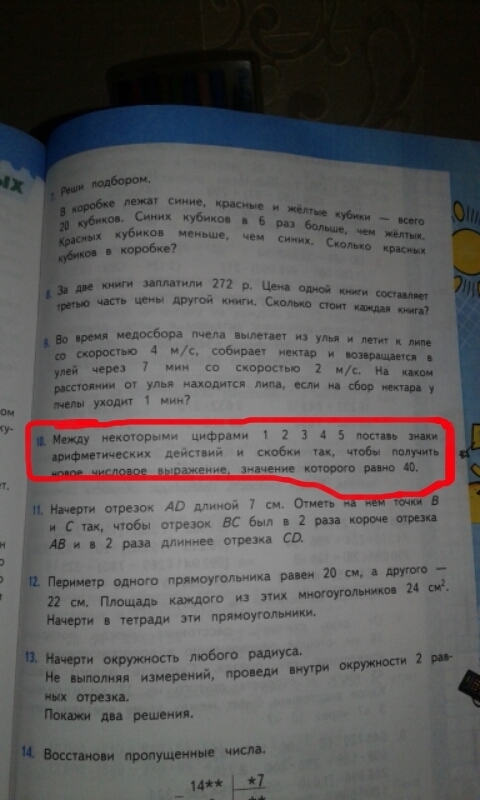 ых
7. Реши подбором.
В коробке лежат синие, красные и жёлтые кубики — всего
20 кубиков. Синих кубиков в 6 раз больше, чем жёлтых.
Красных кубиков меньше, чем синих. Сколько красных
кубиков в коробке?
8. За две книги заплатили 272 р. Цена одной книги составляет
третью часть цены другой книги. Сколько стоит каждая книга?
9. Во время медосбора пчела вылетает из улья и летит к липе
со скоростью 4 м/с, собирает нектар и возвращается в
улей через 7 мин со скоростью 2 м/с. На каком
расстоянии от улья находится липа, если на сбор нектара у
пчелы уходит 1 мин?
10. Между некоторыми цифрами 1 2 3 4 5 поставь знаки
арифметических действий и скобки так, чтобы получить
новое числовое выражение, значение которого равно 40.
11. Начерти отрезок AD длиной 7 см. Отметь на нём точки B
и C так, чтобы отрезок BC был в 2 раза короче отрезка
AB и в 2 раза длиннее отрезка CD.
12. Периметр одного прямоугольника равен 20 см, а другого —
22 см. Площадь каждого из этих многоугольников 24 см².
Начерти в тетради эти прямоугольники.
13. Начерти окружность любого радиуса.
Не выполняя измерений, проведи внутри окружности 2 рав-
ных отрезка.
Покажи два решения.
14. Восстанови пропущенные числа.
14** *7